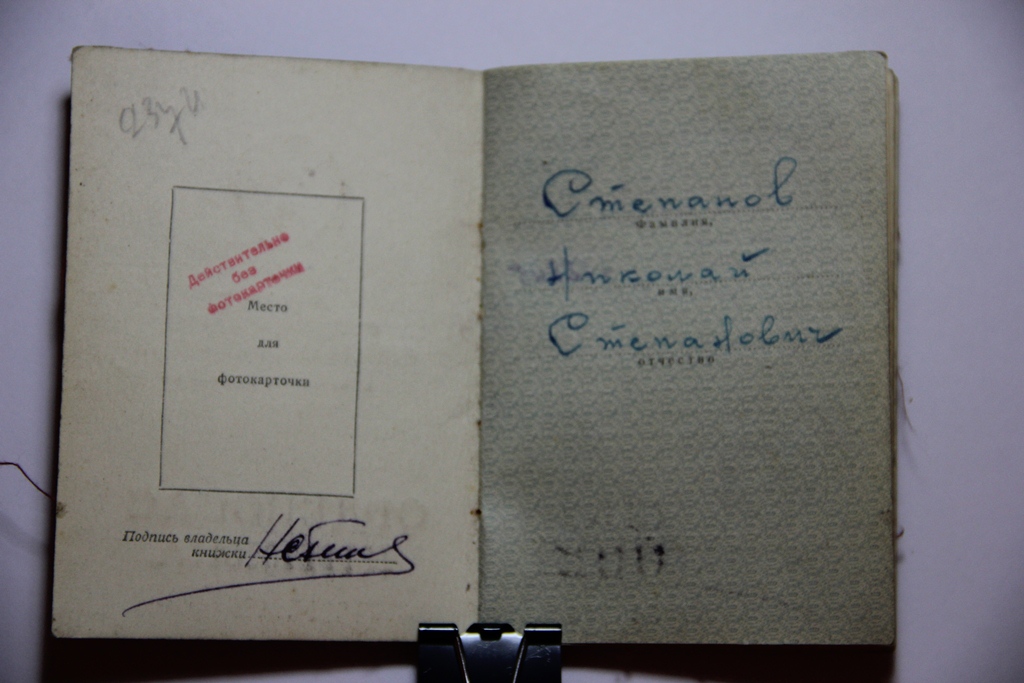 Действительно
без
фотокарточки
Место
для
фотокарточки
Подпись владельца
книжки
Степанов
Фамилия,
Николай
имя,
Степанович
отчество